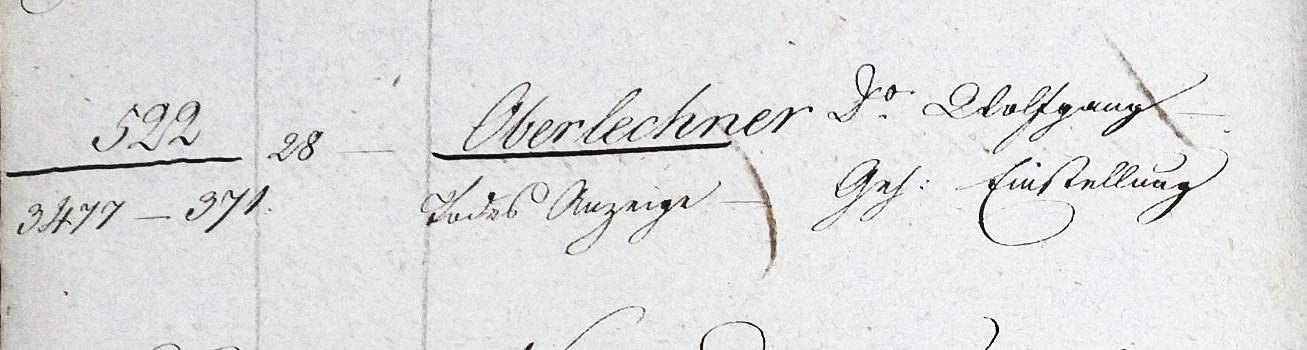 522 28 — Oberlechner Dr. Wolfgang —
3477 — 371. Todes Anzeige — Geh: Einstellung